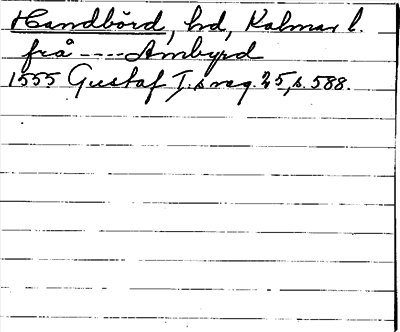 Handbörd, hd, Kalmar l.
frå ---- Ambyrd
1555 Gustaf I.s reg. 25, s. 588.